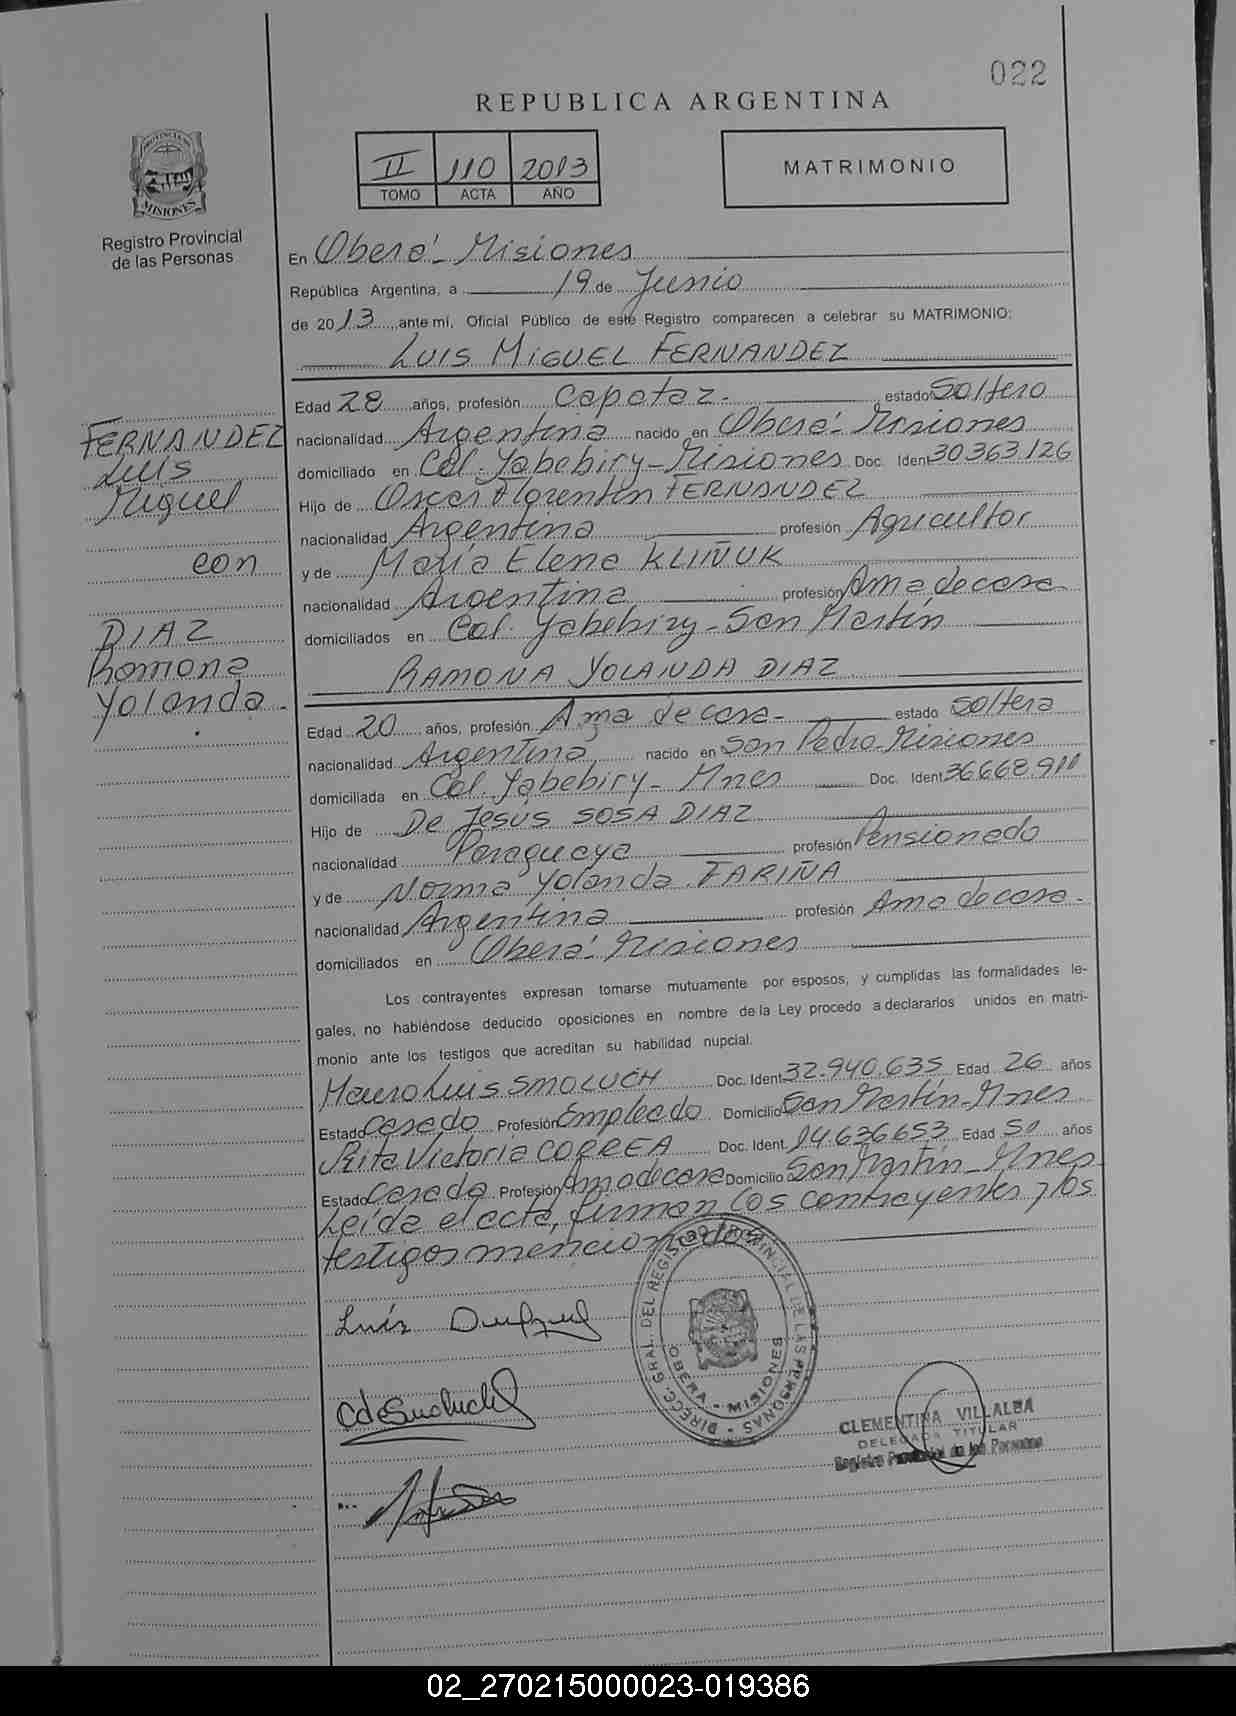 022
REPUBLICA ARGENTINA
II 110 2013
TOMO ACTA AÑO
MATRIMONIO
PROVINCIA DE
MISIONES
Registro Provincial
de las Personas
En Oberá - Misiones
República Argentina, a 19 de Junio
de 2013 ante mí, Oficial Público de este Registro comparecen a celebrar su MATRIMONIO:
LUIS MIGUEL FERNANDEZ
FERNANDEZ
Luis
Miguel
con
DIAZ
Ramona
Yolanda.
Edad 28 años, profesión Capataz - estado Soltero
nacionalidad Argentina nacido en Oberá - Misiones
domiciliado en Col. Yabebiry - Misiones Doc. Ident 30363126
Hijo de Oscar Florentin FERNANDEZ
nacionalidad Argentina profesión Agricultor
y de María Elena KLIÑUK
nacionalidad Argentina profesión Ama de casa -
domiciliados en Col. Yabebiry - San Martín
RAMONA YOLANDA DIAZ
Edad 20 años, profesión Ama de casa - estado soltera
nacionalidad Argentina nacido en San Pedro - Misiones
domiciliada en Col. Yabebiry - Mnes Doc. Ident 36668.911
Hijo de De Jesus SOSA DIAZ
nacionalidad Paraguaya profesión Pensionado
y de Norma Yolanda FARIÑA
nacionalidad Argentina profesión Ama de casa -
domiciliados en Oberá - Misiones
Los contrayentes expresan tomarse mutuamente por esposos, y cumplidas las formalidades le-
gales, no habiéndose deducido oposiciones en nombre de la Ley procedo a declararlos unidos en matri-
monio ante los testigos que acreditan su habilidad nupcial.
Mauro Luis SMOLUCH Doc. Ident 32.940.635 Edad 26 años
Estado Casado Profesión Empleado Domicilio San Martín - Mnes
Rita Victoria CORREA Doc. Ident. 14.636.653 Edad 50 años
Estado Casada Profesión Ama de casa Domicilio San Martín - Mnes
Leída el acta, firman los contrayentes y los
testigos mencionados
DIRECC. GRAL. DEL REGISTRO PROVINCIAL DE LAS PERSONAS
OBERA - MISIONES
Luis
CLEMENTINA VILLALBA
DELEGADA TITULAR
Registro Provincial de las Personas
02_270215000023-019386